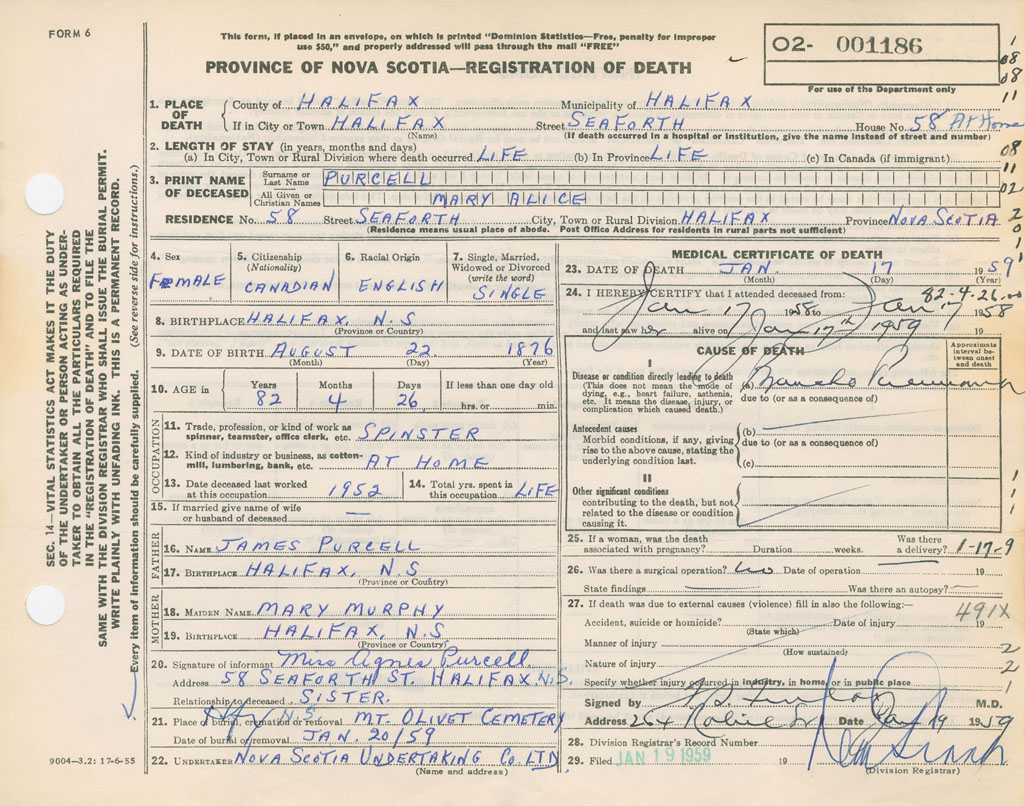 FORM 6
This form, if placed in an envelope, on which is printed "Dominion Statistics—Free, penalty for improper
use $50," and properly addressed will pass through the mail "FREE"
O2- 001186
For use of the Department only
PROVINCE OF NOVA SCOTIA—REGISTRATION OF DEATH
1. PLACE OF DEATH County of HALIFAX Municipality of HALIFAX
If in City or Town HALIFAX Street SEAFORTH House No. 58 At Home
(Name) (If death occurred in a hospital or institution, give the name instead of street and number)
2. LENGTH OF STAY (in years, months and days)
(a) In City, Town or Rural Division where death occurred LIFE (b) In Province LIFE (c) In Canada (if immigrant)
3. PRINT NAME OF DECEASED Surname or Last Name PURCELL
All Given or Christian Names MARY ALICE
RESIDENCE No. 58 Street SEAFORTH City, Town or Rural Division HALIFAX Province NOVA SCOTIA
(Residence means usual place of abode. Post Office Address for residents in rural parts not sufficient)
1
08
08
11
08
11
02
2
0
1
1
SEC. 14—VITAL STATISTICS ACT MAKES IT THE DUTY
OF THE UNDERTAKER OR PERSON ACTING AS UNDER-
TAKER TO OBTAIN ALL THE PARTICULARS REQUIRED
IN THE "REGISTRATION OF DEATH" AND TO FILE THE
SAME WITH THE DIVISION REGISTRAR WHO SHALL ISSUE THE BURIAL PERMIT.
WRITE PLAINLY WITH UNFADING INK. THIS IS A PERMANENT RECORD.
Every item of information should be carefully supplied. (See reverse side for instructions.)
4. Sex FEMALE
5. Citizenship (Nationality) CANADIAN
6. Racial Origin ENGLISH
7. Single, Married, Widowed or Divorced (write the word) SINGLE
8. BIRTHPLACE HALIFAX, N.S
(Province or Country)
9. DATE OF BIRTH AUGUST 22 1876
(Month) (Day) (Year)
10. AGE in Years 82 Months 4 Days 26 If less than one day old hrs. or min.
OCCUPATION
11. Trade, profession, or kind of work as spinner, teamster, office clerk, etc. SPINSTER
12. Kind of industry or business, as cotton-mill, lumbering, bank, etc. AT HOME
13. Date deceased last worked at this occupation 1952
14. Total yrs. spent in this occupation LIFE
15. If married give name of wife or husband of deceased —
FATHER
16. NAME JAMES PURCELL
17. BIRTHPLACE HALIFAX, N.S
(Province or Country)
MOTHER
18. MAIDEN NAME MARY MURPHY
19. BIRTHPLACE HALIFAX, N.S.
(Province or Country)
20. Signature of informant Miss Agnes Purcell
Address 58 SEAFORTH ST. HALIFAX N.S.
Relationship to deceased SISTER.
21. Place of burial, cremation or removal MT. OLIVET CEMETERY
Date of burial or removal JAN. 20/59
22. UNDERTAKER NOVA SCOTIA UNDERTAKING CO. LTD.
(Name and address)
9004—3.2: 17-6-55
MEDICAL CERTIFICATE OF DEATH
23. DATE OF DEATH JAN. 17 1959
(Month) (Day) (Year)
82-4-26
24. I HEREBY CERTIFY that I attended deceased from:
Jan 17 1958 to Jan 17 1958
and last saw her alive on Jan 17th 1959 19
CAUSE OF DEATH
Approximate interval between onset and death
I
Disease or condition directly leading to death
(This does not mean the mode of dying, e.g., heart failure, asthenia, etc. It means the disease, injury, or complication which caused death.)
(a) Broncho Pneumonia
due to (or as a consequence of)
Antecedent causes
Morbid conditions, if any, giving rise to the above cause, stating the underlying condition last.
(b)
due to (or as a consequence of)
(c)
II
Other significant conditions
contributing to the death, but not related to the disease or condition causing it.
1
1
1
25. If a woman, was the death associated with pregnancy? Duration weeks. Was there a delivery?
1-17-9
26. Was there a surgical operation? no Date of operation 19
State findings Was there an autopsy?
27. If death was due to external causes (violence) fill in also the following:—
491X
Accident, suicide or homicide? Date of injury 19
(State which)
Manner of injury 2
(How sustained)
Nature of injury 2
Specify whether injury occurred in industry, in home, or in public place 1
Signed by M.D.
Address 264 Date Jan 19 1959
28. Division Registrar's Record Number
29. Filed JAN 19 1959 19
(Division Registrar)